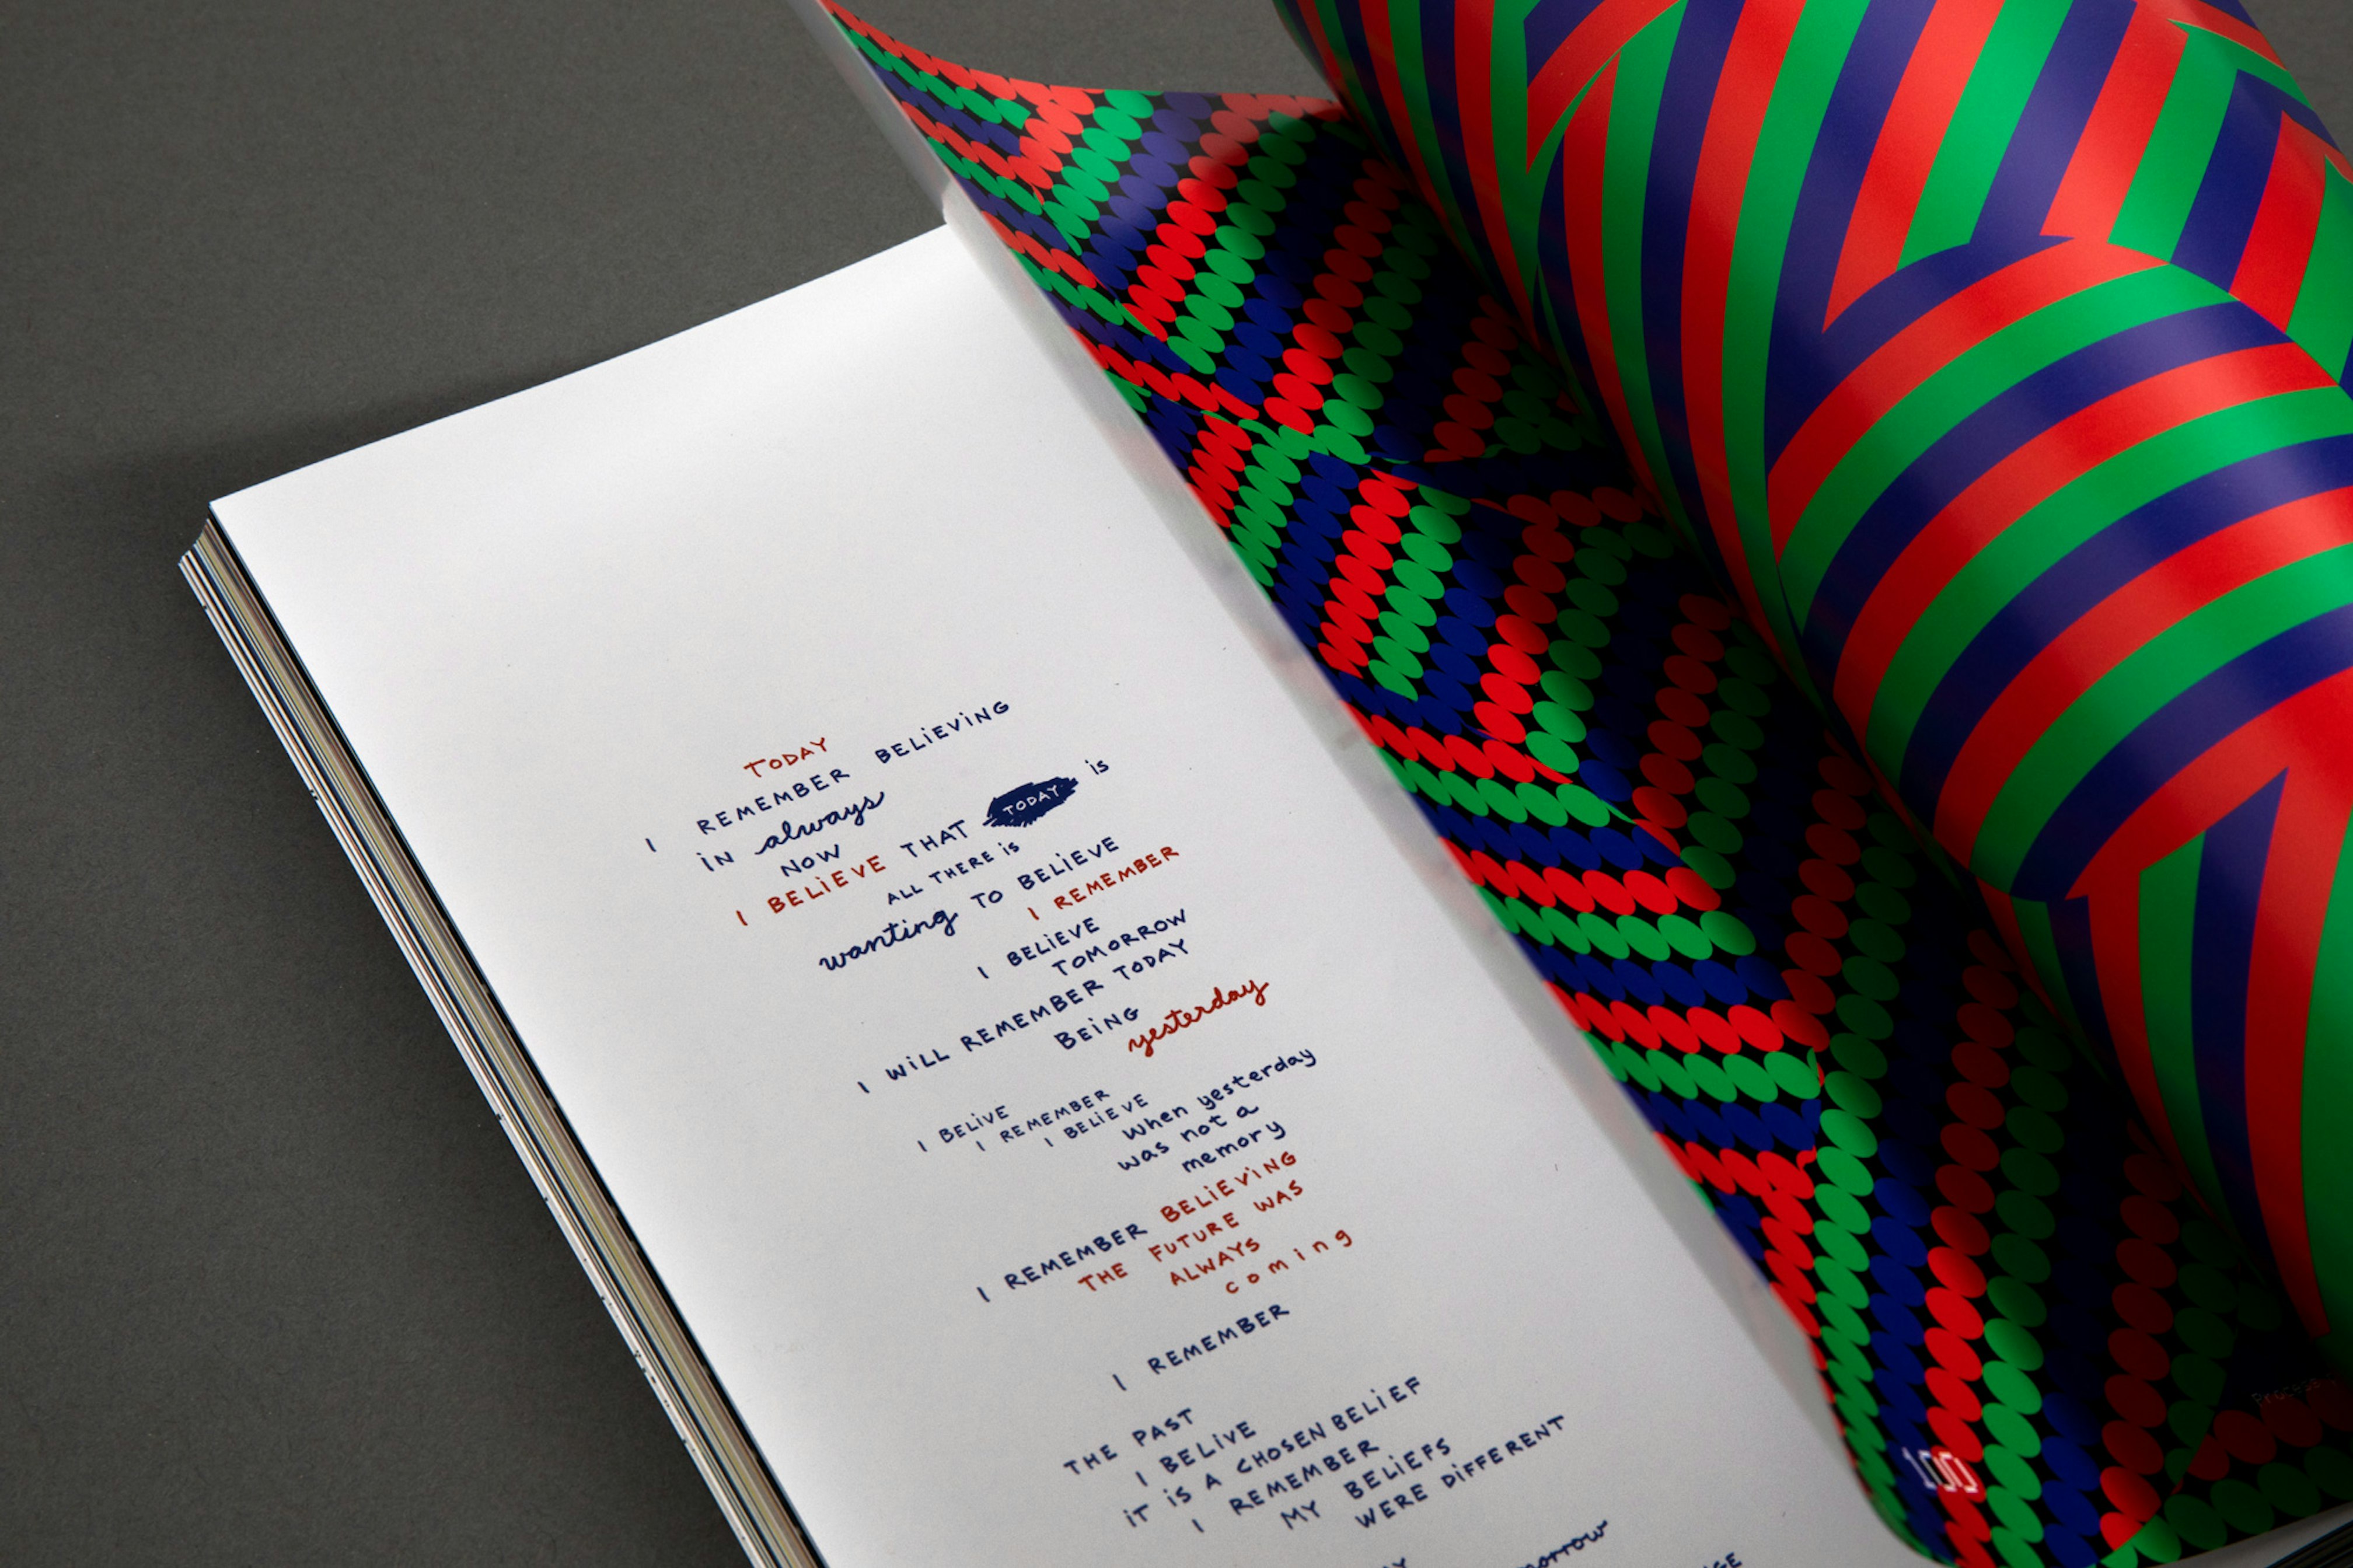 TODAY
I REMEMBER BELiEViNG
iN always
NOW
I BELiEVE THAT TODAY is
ALL THERE is
wanting TO BELiEVE
I REMEMBER
I BELiEVE
TOMORROW
I WiLL REMEMBER TODAY
BEiNG
yesterday
I BELiVE
I REMEMBER
I BELiEVE
when yesterday
was not a
memory
I REMEMBER BELiEViNG
THE FUTURE WAS
ALWAYS
coming
I REMEMBER
THE PAST
I BELiVE
iT iS A CHOSEN BELiEF
I REMEMBER
MY BELiEFS
WERE DiFFERENT
100